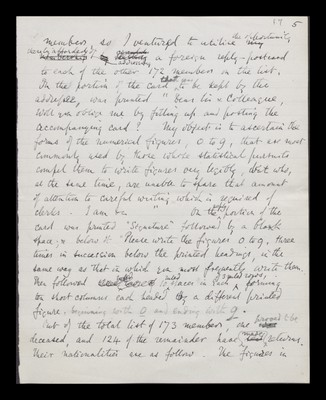 5
members so I ventured to utilise the opportunity
by addressing a foreign reply-postcard
to each of the other 172 members in the list.
On the portion of the card, to be kept by the
addressee, was printed "Dear Sir & Colleague,
Will you oblige me by filling up and posting the
accompanying card? My object is to ascertain the
forms of the numerical figures, 0 to 9, that are most
commonly used by those whose statistical pursuits
compel them to write figures very legibly, but who,
at the same time, are unable to spare that amount
of attention to careful writing which is required of
clerks. I am &c " On the portion of the
card was printed "Signature" followed by a blank
space; & below it "Please write the figures 0 to 9, three
times in succession below the printed headings, in the
same way as that in which you most frequently write them.
Then followed spaces forming
ten short columns each headed by a different printed
figure, beginning with 0 and ending with 9.
Out of the total list of 173 members, one proved to be
deceased, and 124 of the remainder have returns.
Their nationalities are as follow. The figures in